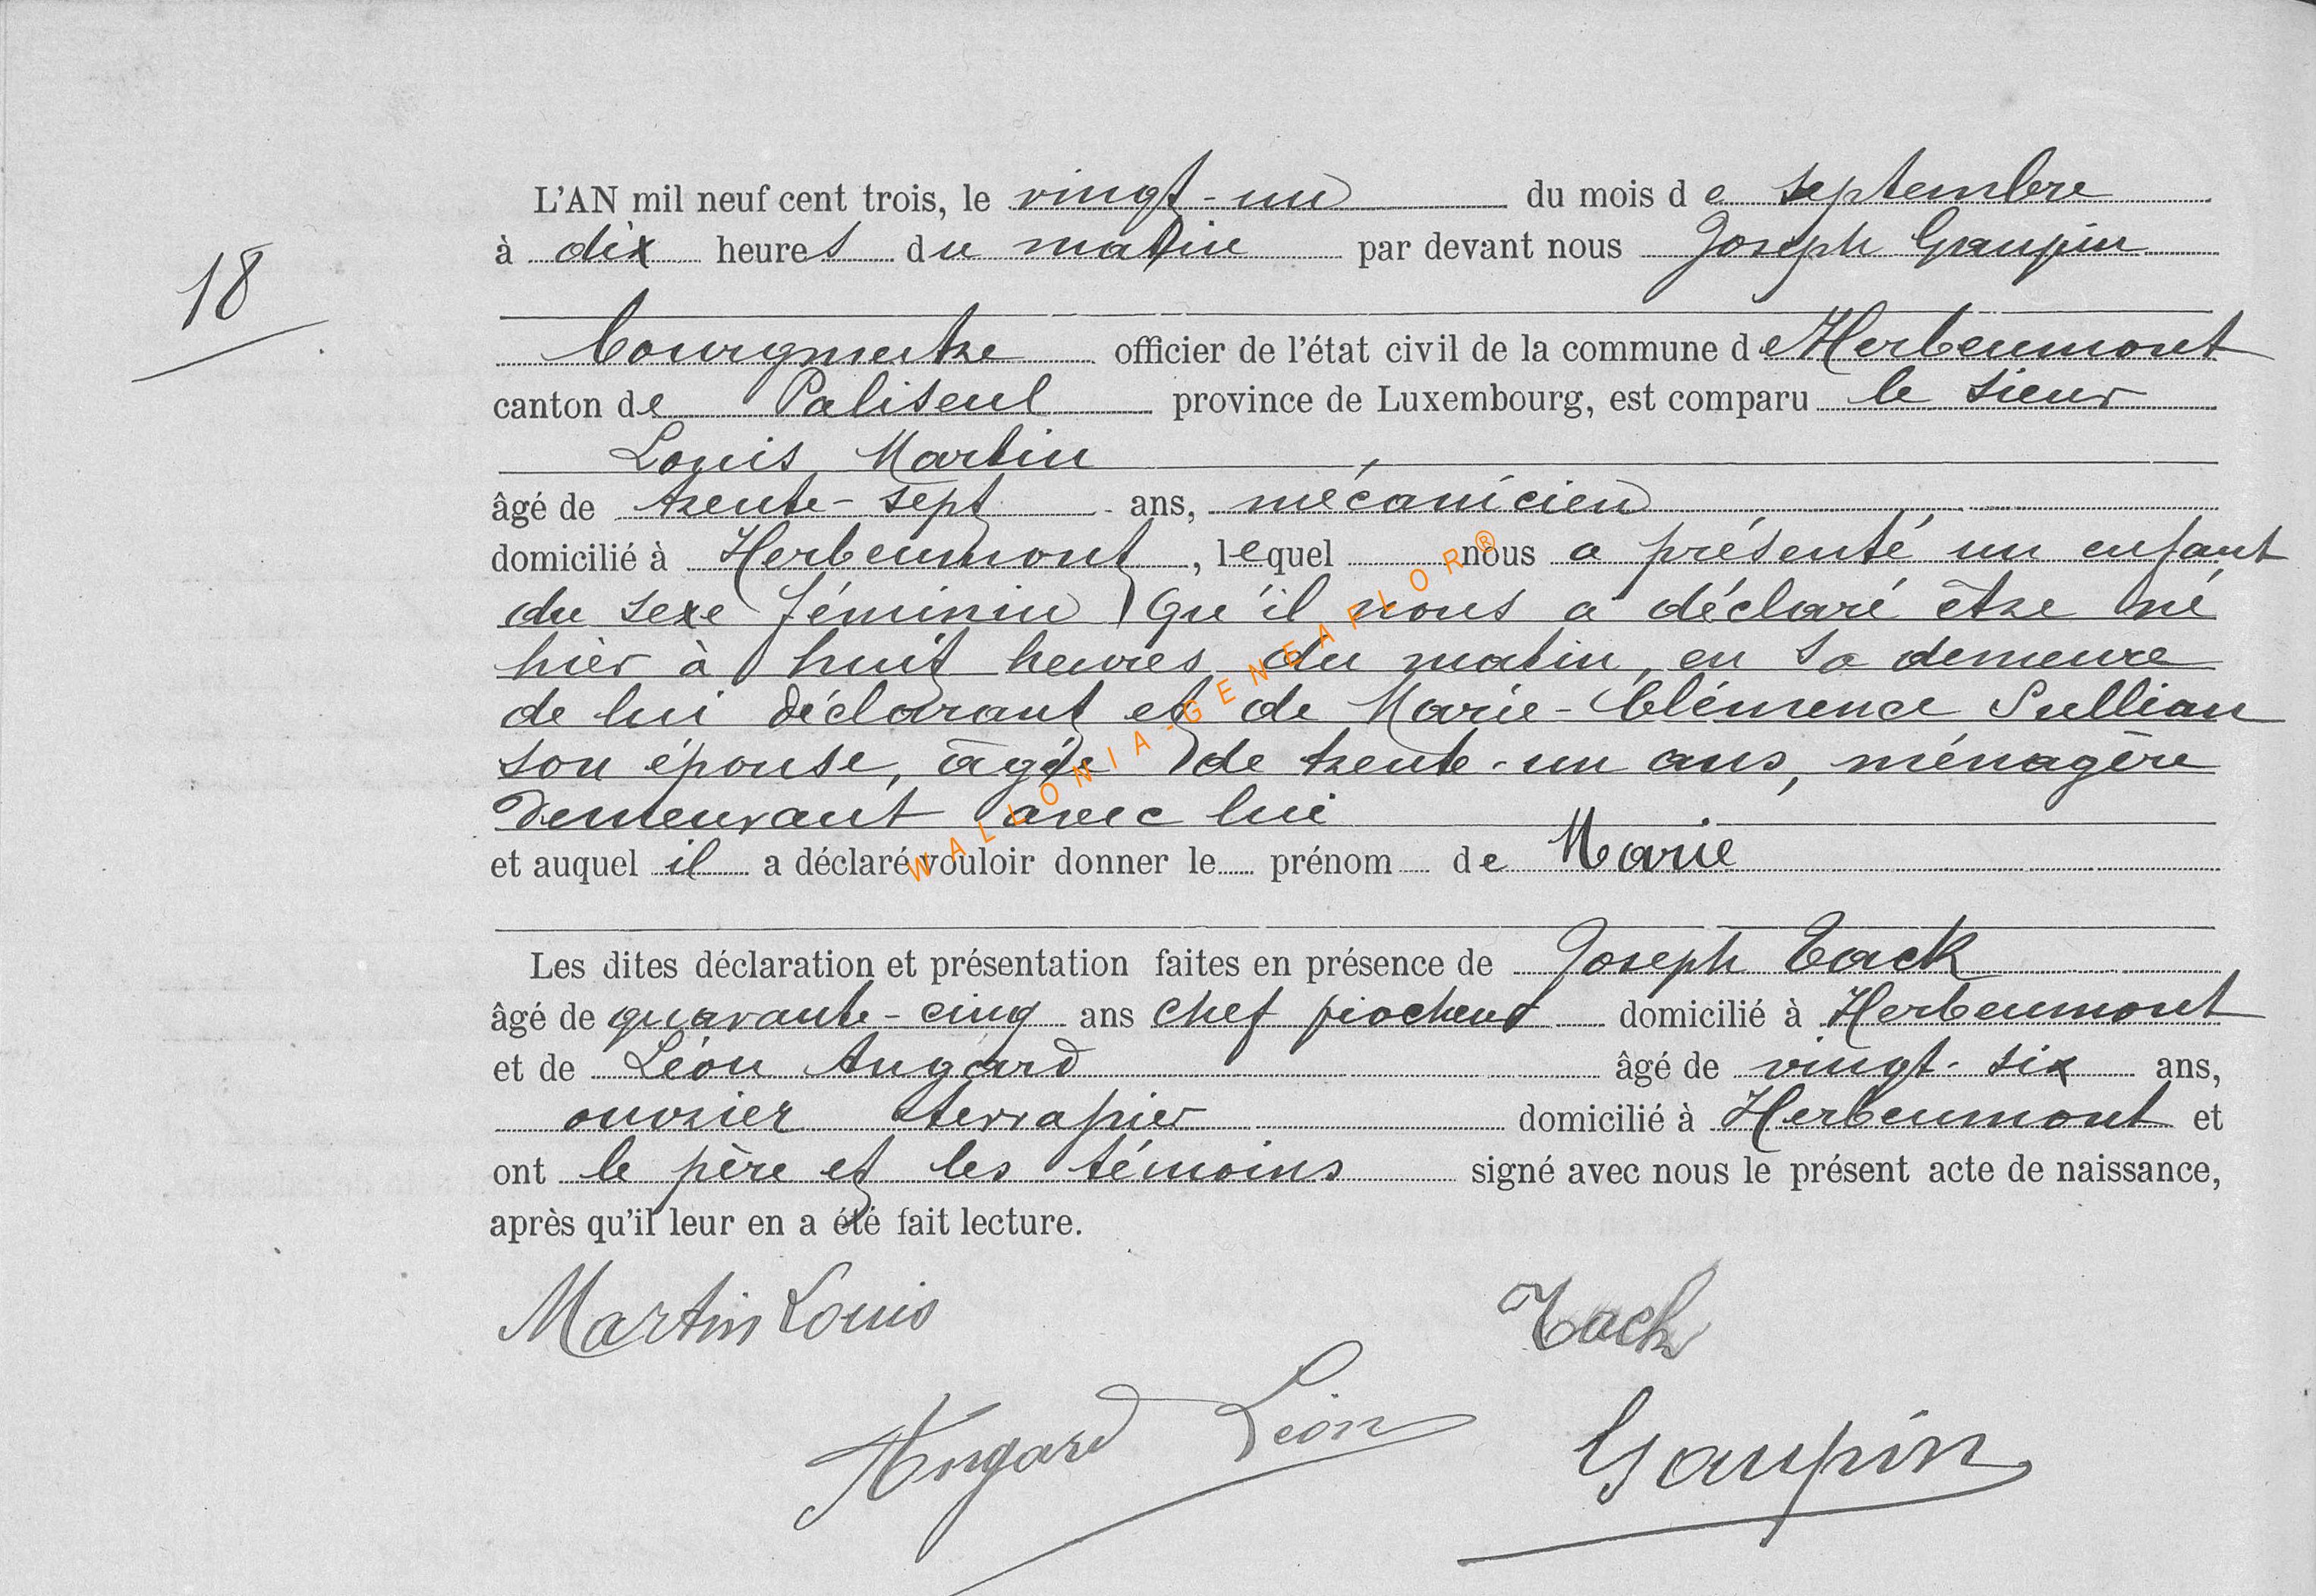 L'AN mil neuf cent trois, le vingt-un du mois de septembre
18
à dix heures du matin par devant nous Joseph Gaupin
bourgmestre officier de l'état civil de la commune de Herbeumont
canton de Paliseul province de Luxembourg, est comparu le sieur
Louis Martin,
âgé de trente-sept ans, mécanicien
domicilié à Herbeumont, lequel nous a présenté un enfant
du sexe féminin qu'il nous a déclaré être né
hier à huit heures du matin, en sa demeure
de lui déclarant et de Marie-Clémence Sullian
son épouse, âgée de trente-un ans, ménagère
demeurant avec lui
et auquel il a déclaré vouloir donner le prénom de Marie
Les dites déclaration et présentation faites en présence de Joseph Tack
âgé de quarante-cinq ans chef piocheur domicilié à Herbeumont
et de Léon Angard âgé de vingt-six ans,
ouvrier terrassier domicilié à Herbeumont et
ont le père et les témoins signé avec nous le présent acte de naissance,
après qu'il leur en a été fait lecture.
Martin Louis Tack
Angard Léon Gaupin
WALLONIA-GENEAFLOR®